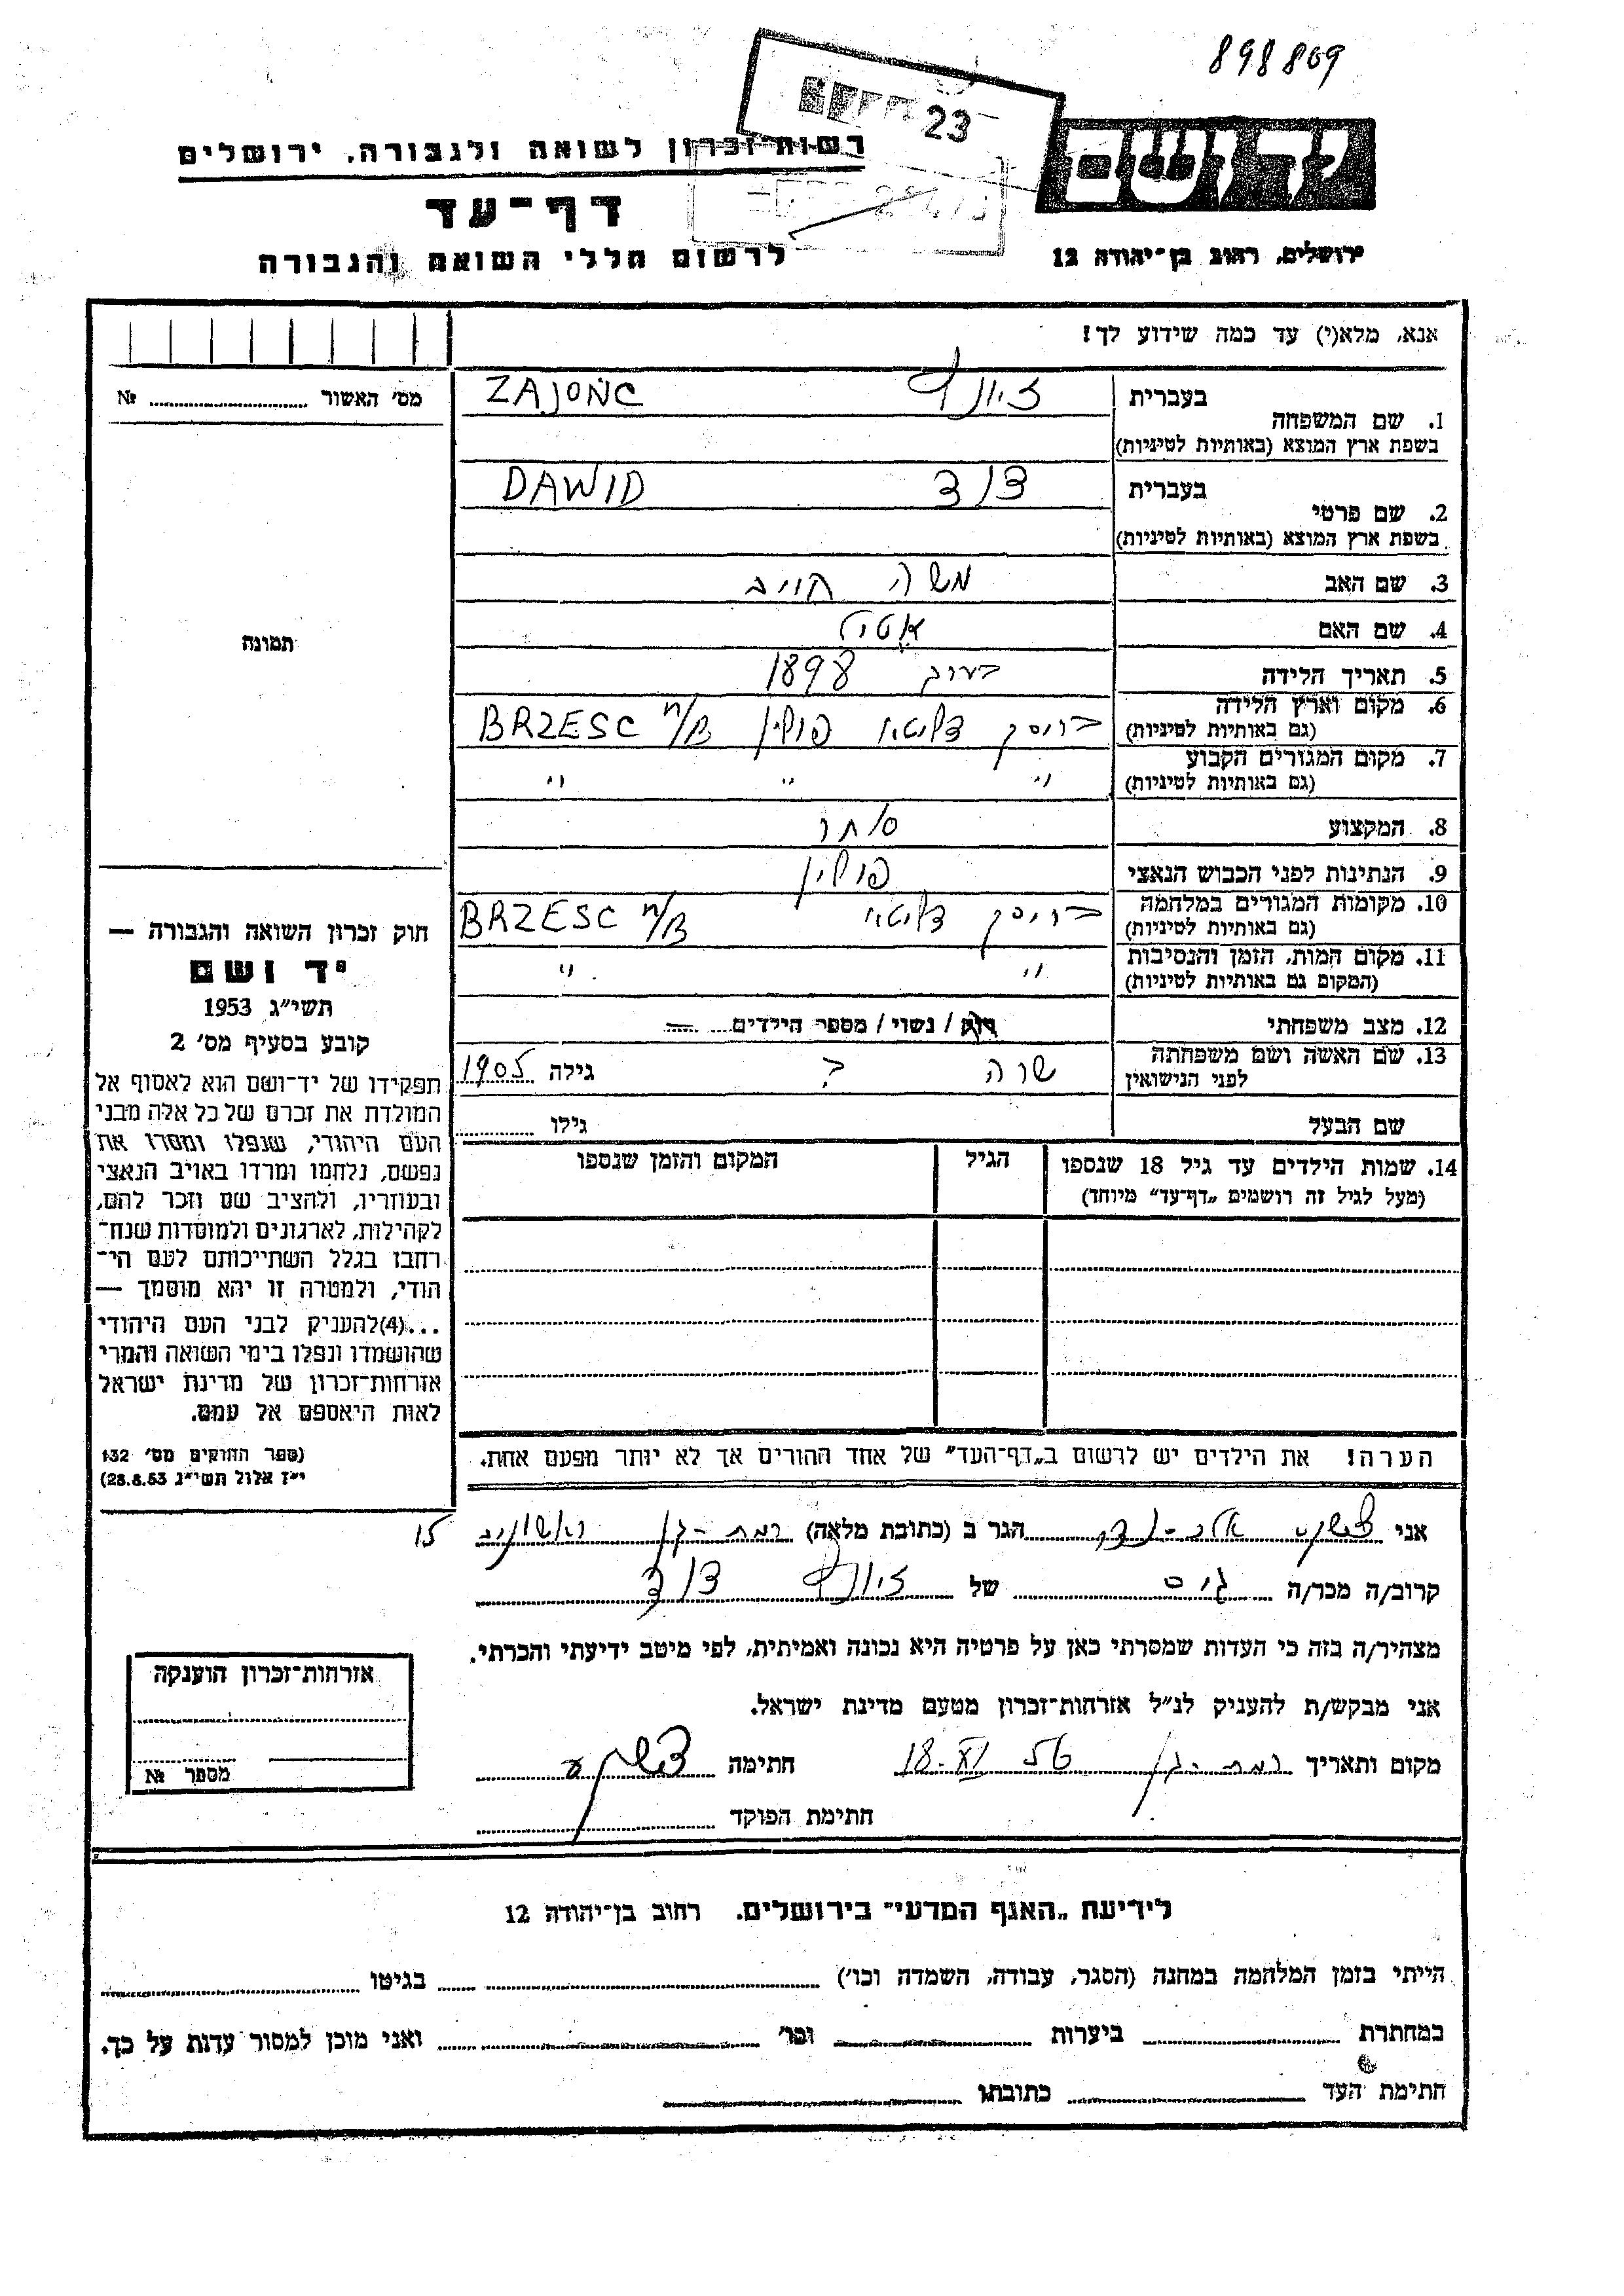 898809
23
יד ושם
רשות-זכרון לשואה ולגבורה, ירושלים
דף-עד
לרשום חללי השואה והגבורה
ירושלים, רחוב בן-יהודה 12
אנא, מלא(י) עד כמה שידוע לך!
מס' האשור ........ №
תמונה
1. שם המשפחה בעברית זיונץ ZAJONC
בשפת ארץ המוצא (באותיות לטיניות)
2. שם פרטי בעברית דוד DAWID
בשפת ארץ המוצא (באותיות לטיניות)
3. שם האב משה
4. שם האם
5. תאריך הלידה 1898
6. מקום וארץ הלידה בריסק דליטא פולין BRZESC n/B
(גם באותיות לטיניות)
7. מקום המגורים הקבוע " " "
(גם באותיות לטיניות)
8. המקצוע סוחר
9. הנתינות לפני הכבוש הנאצי פולין
10. מקומות המגורים במלחמה בריסק דליטא BRZESC n/B
(גם באותיות לטיניות)
11. מקום המות, הזמן והנסיבות " "
(המקום גם באותיות לטיניות)
12. מצב משפחתי רווק / נשוי / מספר הילדים —
13. שם האשה ושם משפחתה שרה ? גילה 1905
לפני הנישואין
שם הבעל גילו ........
14. שמות הילדים עד גיל 18 שנספו הגיל המקום והזמן שנספו
(מעל לגיל זה רושמים "דף-עד" מיוחד)
הערה! את הילדים יש לרשום ב"דף-העד" של אחד ההורים אך לא יותר מפעם אחת.
חוק זכרון השואה והגבורה —
יד ושם
תשי"ג 1953
קובע בסעיף מס' 2
תפקידו של יד-ושם הוא לאסוף אל
המולדת את זכרם של כל אלה מבני
העם היהודי, שנפלו ומסרו את
נפשם, נלחמו ומרדו באויב הנאצי
ובעוזריו, ולהציב שם וזכר להם,
לקהילות, לארגונים ולמוסדות שנח-
רבו בגלל השתייכותם לעם הי-
הודי, ולמטרה זו יהא מוסמך —
...(4)להעניק לבני העם היהודי
שהושמדו ונפלו בימי השואה והמרי
אזרחות-זכרון של מדינת ישראל
לאות היאספם אל עמם.
(ספר החוקים מס' 132
י"ז אלול תשי"ג 28.8.53)
אני הגר ב (כתובת מלאה) רמת-גן 15
קרוב/ה מכר/ה גיס של זיונץ דוד
מצהיר/ה בזה כי העדות שמסרתי כאן על פרטיה היא נכונה ואמיתית, לפי מיטב ידיעתי והכרתי.
אני מבקש/ת להעניק לנ"ל אזרחות-זכרון מטעם מדינת ישראל.
מקום ותאריך רמת-גן 18.XI 56 חתימה
חתימת הפוקד
אזרחות-זכרון הוענקה
מספר №
לידיעת "האגף המדעי" בירושלים. רחוב בן-יהודה 12
הייתי בזמן המלחמה במחנה (הסגר, עבודה, השמדה וכו') ........ בגיטו ........
במחתרת ........ ביערות ........ וכו' ........ ואני מוכן למסור עדות על כך.
חתימת העד ........ כתובתו ........